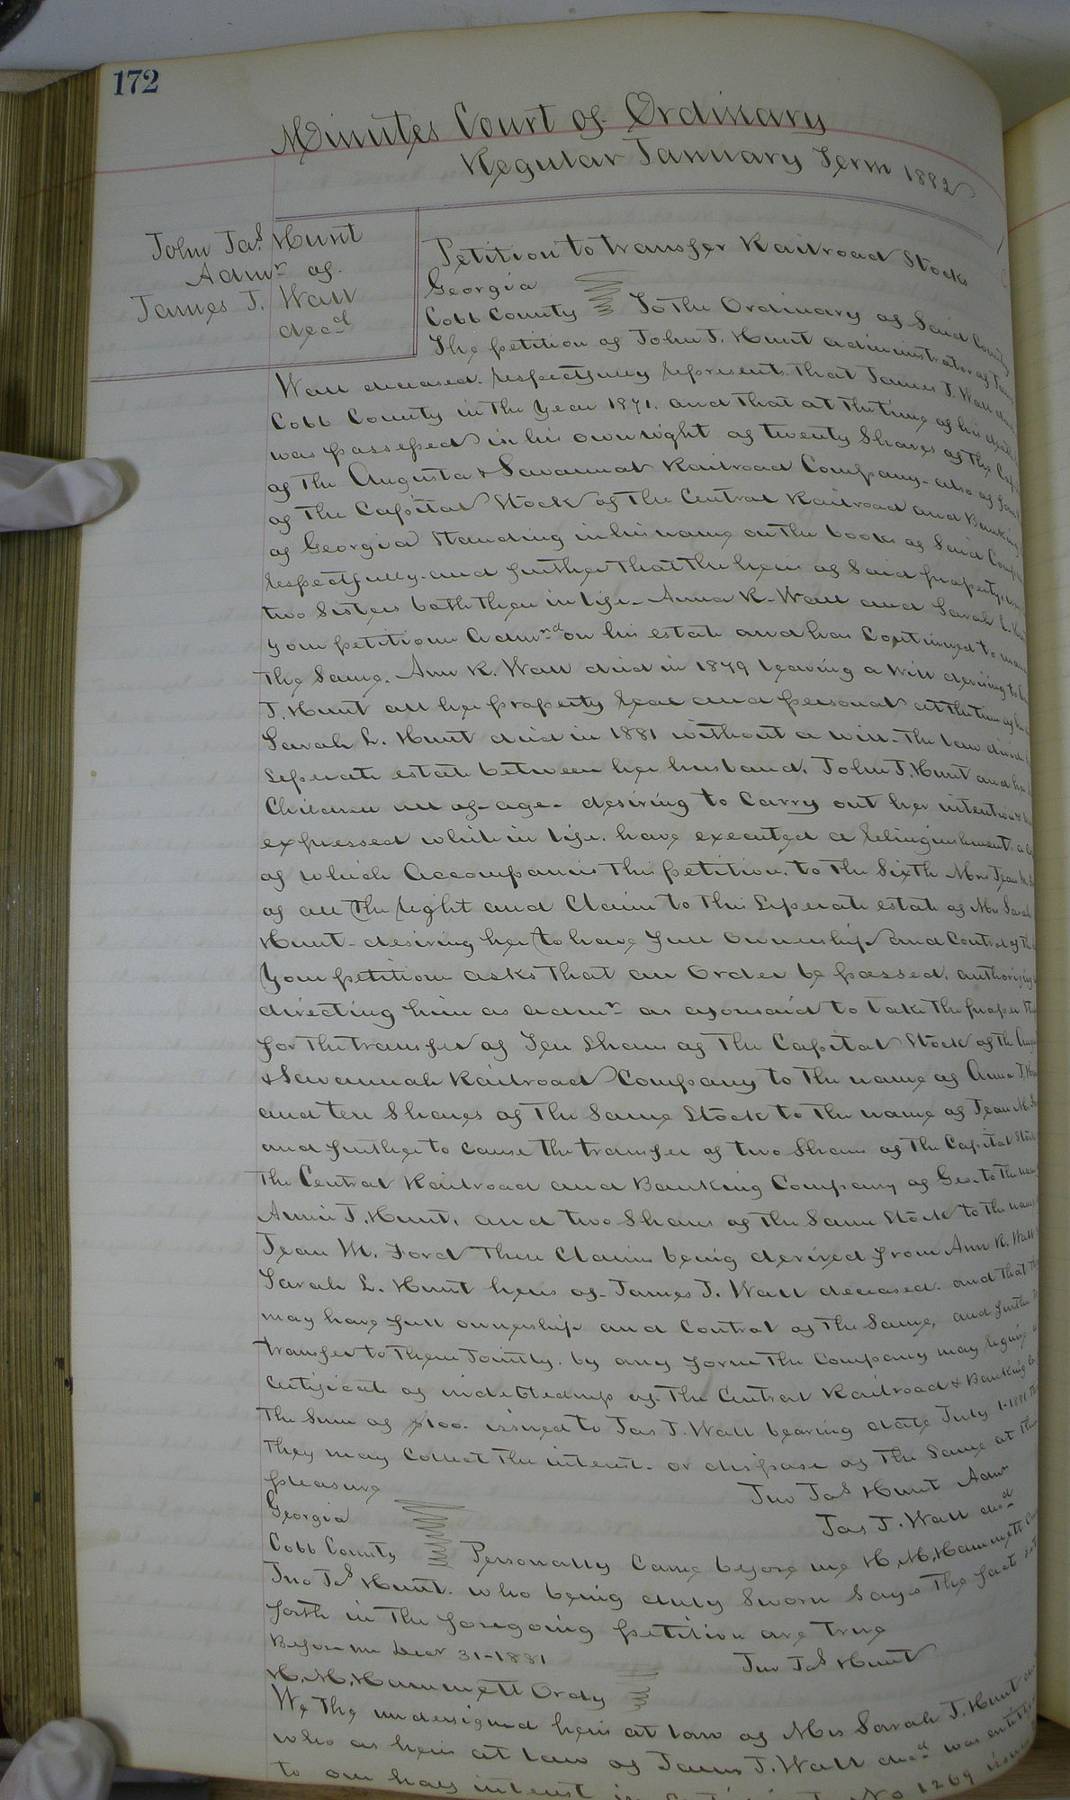 172
Minutes Court of Ordinary
Regular January Term 1882
John Jas. Hunt
Admr of
James J. Wall
decd
Petition to transfer Railroad Stocks
Georgia
Cobb County To the Ordinary of Said County
The petition of John J. Hunt administrator of
Wall deceased. respectfully represents that James J. Wall
Cobb County in the Year 1871. and that at the time of his death
was possessed in his own right of twenty Shares of The
of The Augusta & Savannah Railroad Company - also of
of The Capital Stock of The Central Railroad and Banking
of Georgia Standing in his name on the books of Said
respectfully and further that the heirs of Said property
two Sisters both then in life - Anna R. Wall and Sarah L.
your petitioner Admr on his estate and has Continued to
The Same. Ann R. Wall died in 1879 leaving a will devising to
J. Hunt all her property real and personal at the time of
Sarah L. Hunt died in 1881 without a will - The law
Seperate estate between her husband, John J. Hunt and
Children all of age - desiring to Carry out her intentions
expressed while in life. have executed a relinquishment
of which Accompanies this petition. to the Sixth Mrs Jean M.
of all the right and Claim to this Seperate estate of Mrs Sarah
Hunt - desiring her to have full ownership and Control of
Your petitioner asks that an Order be passed. authorizing
directing him as admr as aforesaid to take the proper
for the transfer of Ten Shares of The Capital Stock of the
& Savannah Railroad Company to The name of Anna J.
and ten Shares of The Same Stock to The name of Jean M.
and further to cause the transfer of two Shares of The Capital Stock
The Central Railroad and Banking Company of Geo. to the
Annie J. Hunt. and two Shares of The Same Stock to the name
Jean M. Ford These Claims being derived from Ann R. Wall
Sarah L. Hunt heirs of James J. Wall deceased. and that
may have full ownership and Control of The Same, and further
transfer to Them Jointly. by any form The Company may require
Certificate of indebtedness of The Central Railroad & Banking
The Sum of $100. issued to Jas J. Wall bearing date July 1-1881
They may Collect The interest - or dispose of The Same at
pleasure
Jno Jas Hunt Admr
Jas J. Wall decd
Georgia
Cobb County Personally Came before me H. M. Hammett
Jno Jas Hunt. who being duly Sworn Says The fact Set
forth in The foregoing petition are True
Before me Decr 31-1881
Jno Jas Hunt
H. M. Hammett Ordy
We The undersigned heirs at law of Mrs Sarah J. Hunt
who as heir at law of James J. Wall decd was entitled
to one half interest No 1269